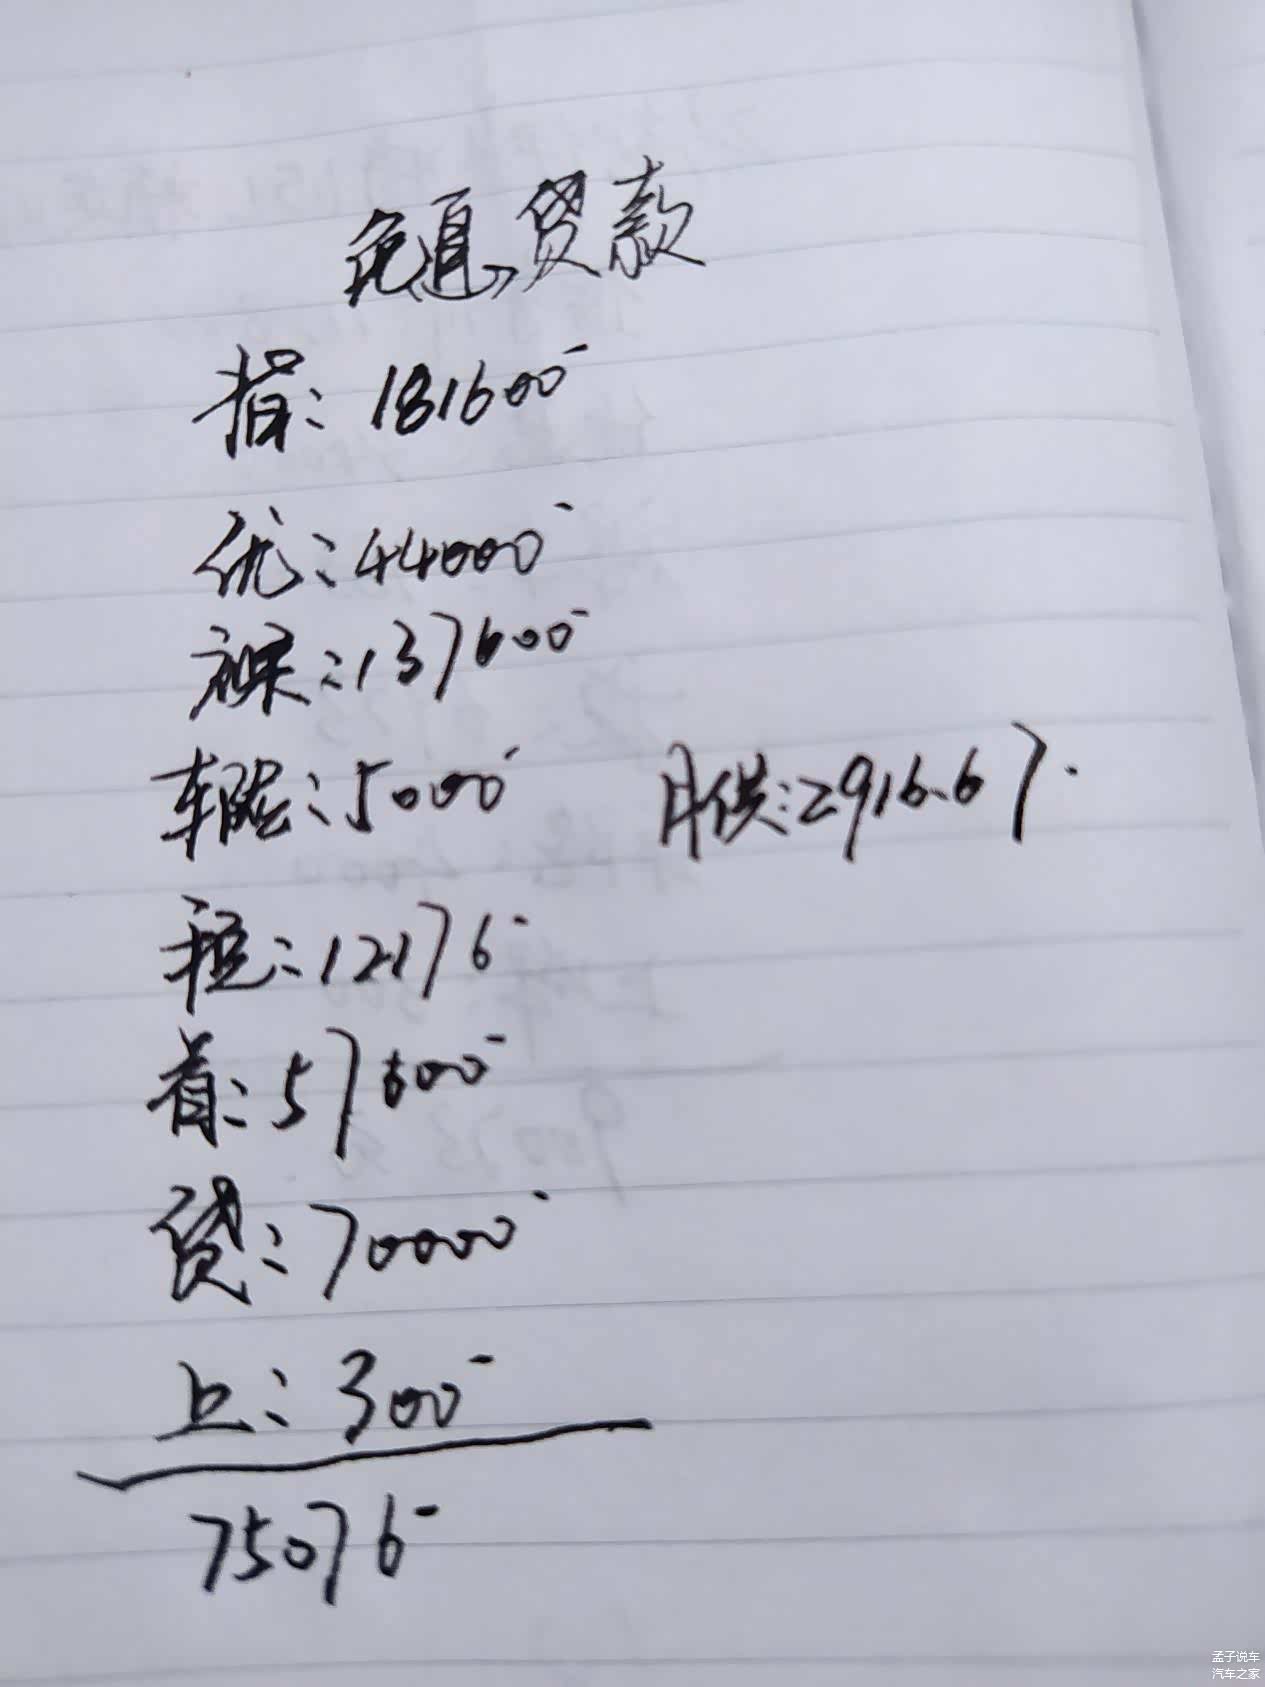 免息贷款
指:181600
优:44000
裸:137600
车险:5000 月供:2916.67
税:12176
首:67600
贷:70000
上:300
75076
孟子说车
汽车之家